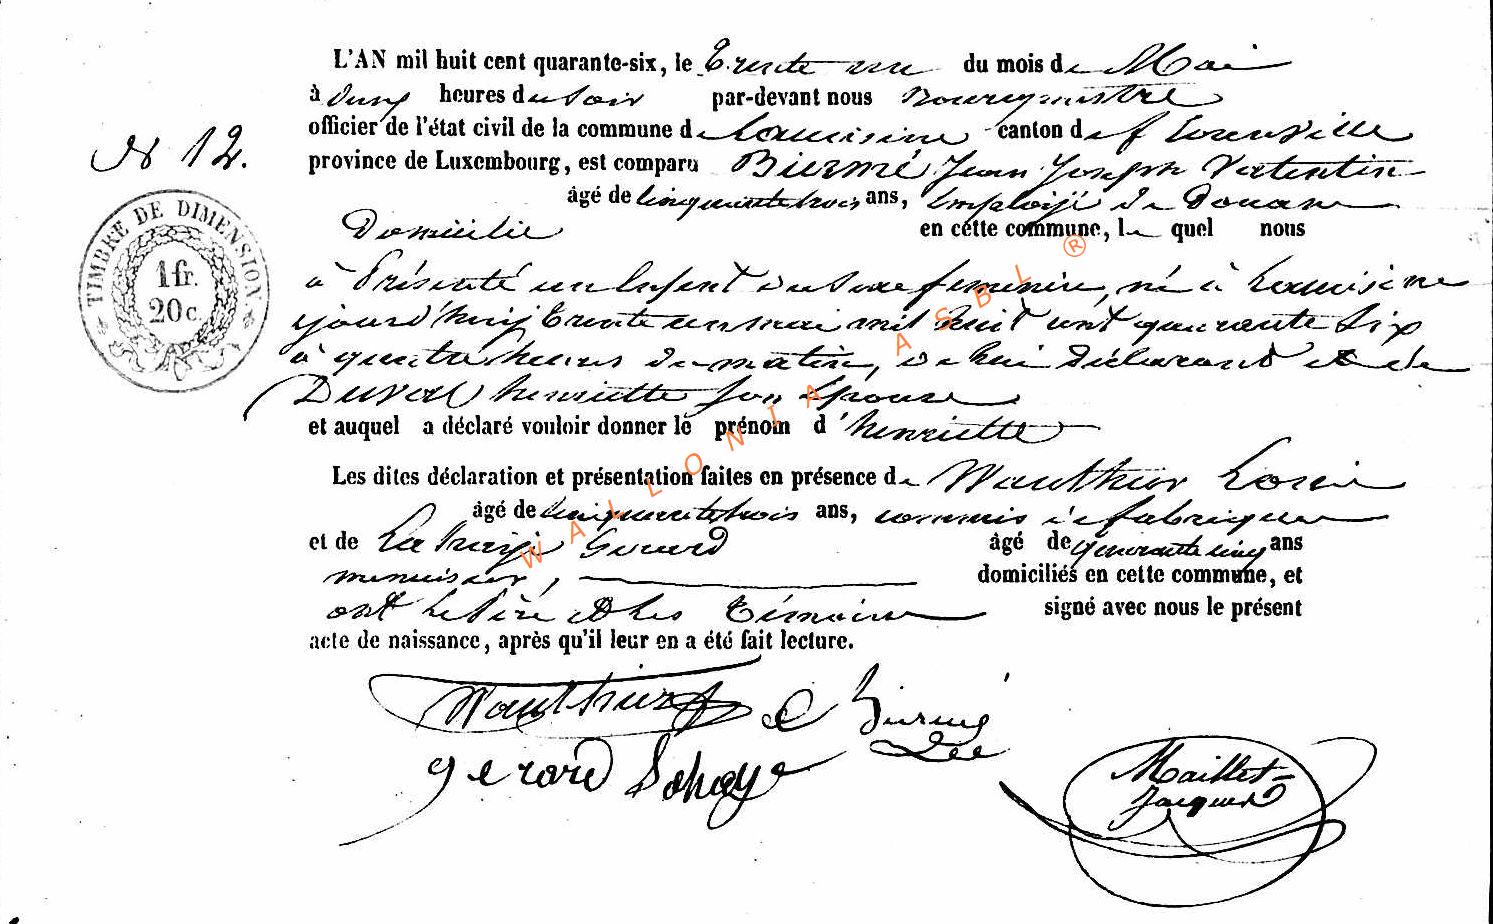 L'AN mil huit cent quarante-six, le Trente un du mois de Mai
à heures du Soir par-devant nous Bourgmestre
officier de l'état civil de la commune de Lacuisine canton de florenville
province de Luxembourg, est comparu Biermé Jean Joseph Valentin
âgé de Cinquante trois ans, Emploijé de Douane
Domicilié en cette commune, le quel nous
à Présenté un Enfent du Sexe feminin, né à Lacuisine
ajourd'huij Trente un mai mil huit cent quarante Six
à quatre heures du matin, de lui Déclarant et de
Duval henriette Son Epouse
et auquel a déclaré vouloir donner le prénom d'henriette
Les dites déclaration et présentation faites en présence de Wauthier
âgé de Cinquante trois ans, commis de fabrique
et de Gerard âgé de quarante cinq ans
menuisier, domiciliés en cette commune, et
ont le Père et les Témoins signé avec nous le présent
acte de naissance, après qu'il leur en a été fait lecture.
Wauthier Biermé
gerard
Maillet
Jacques
N 12.
TIMBRE DE DIMENSION.
1 fr.
20 c.
WALLONIA ASBL ®